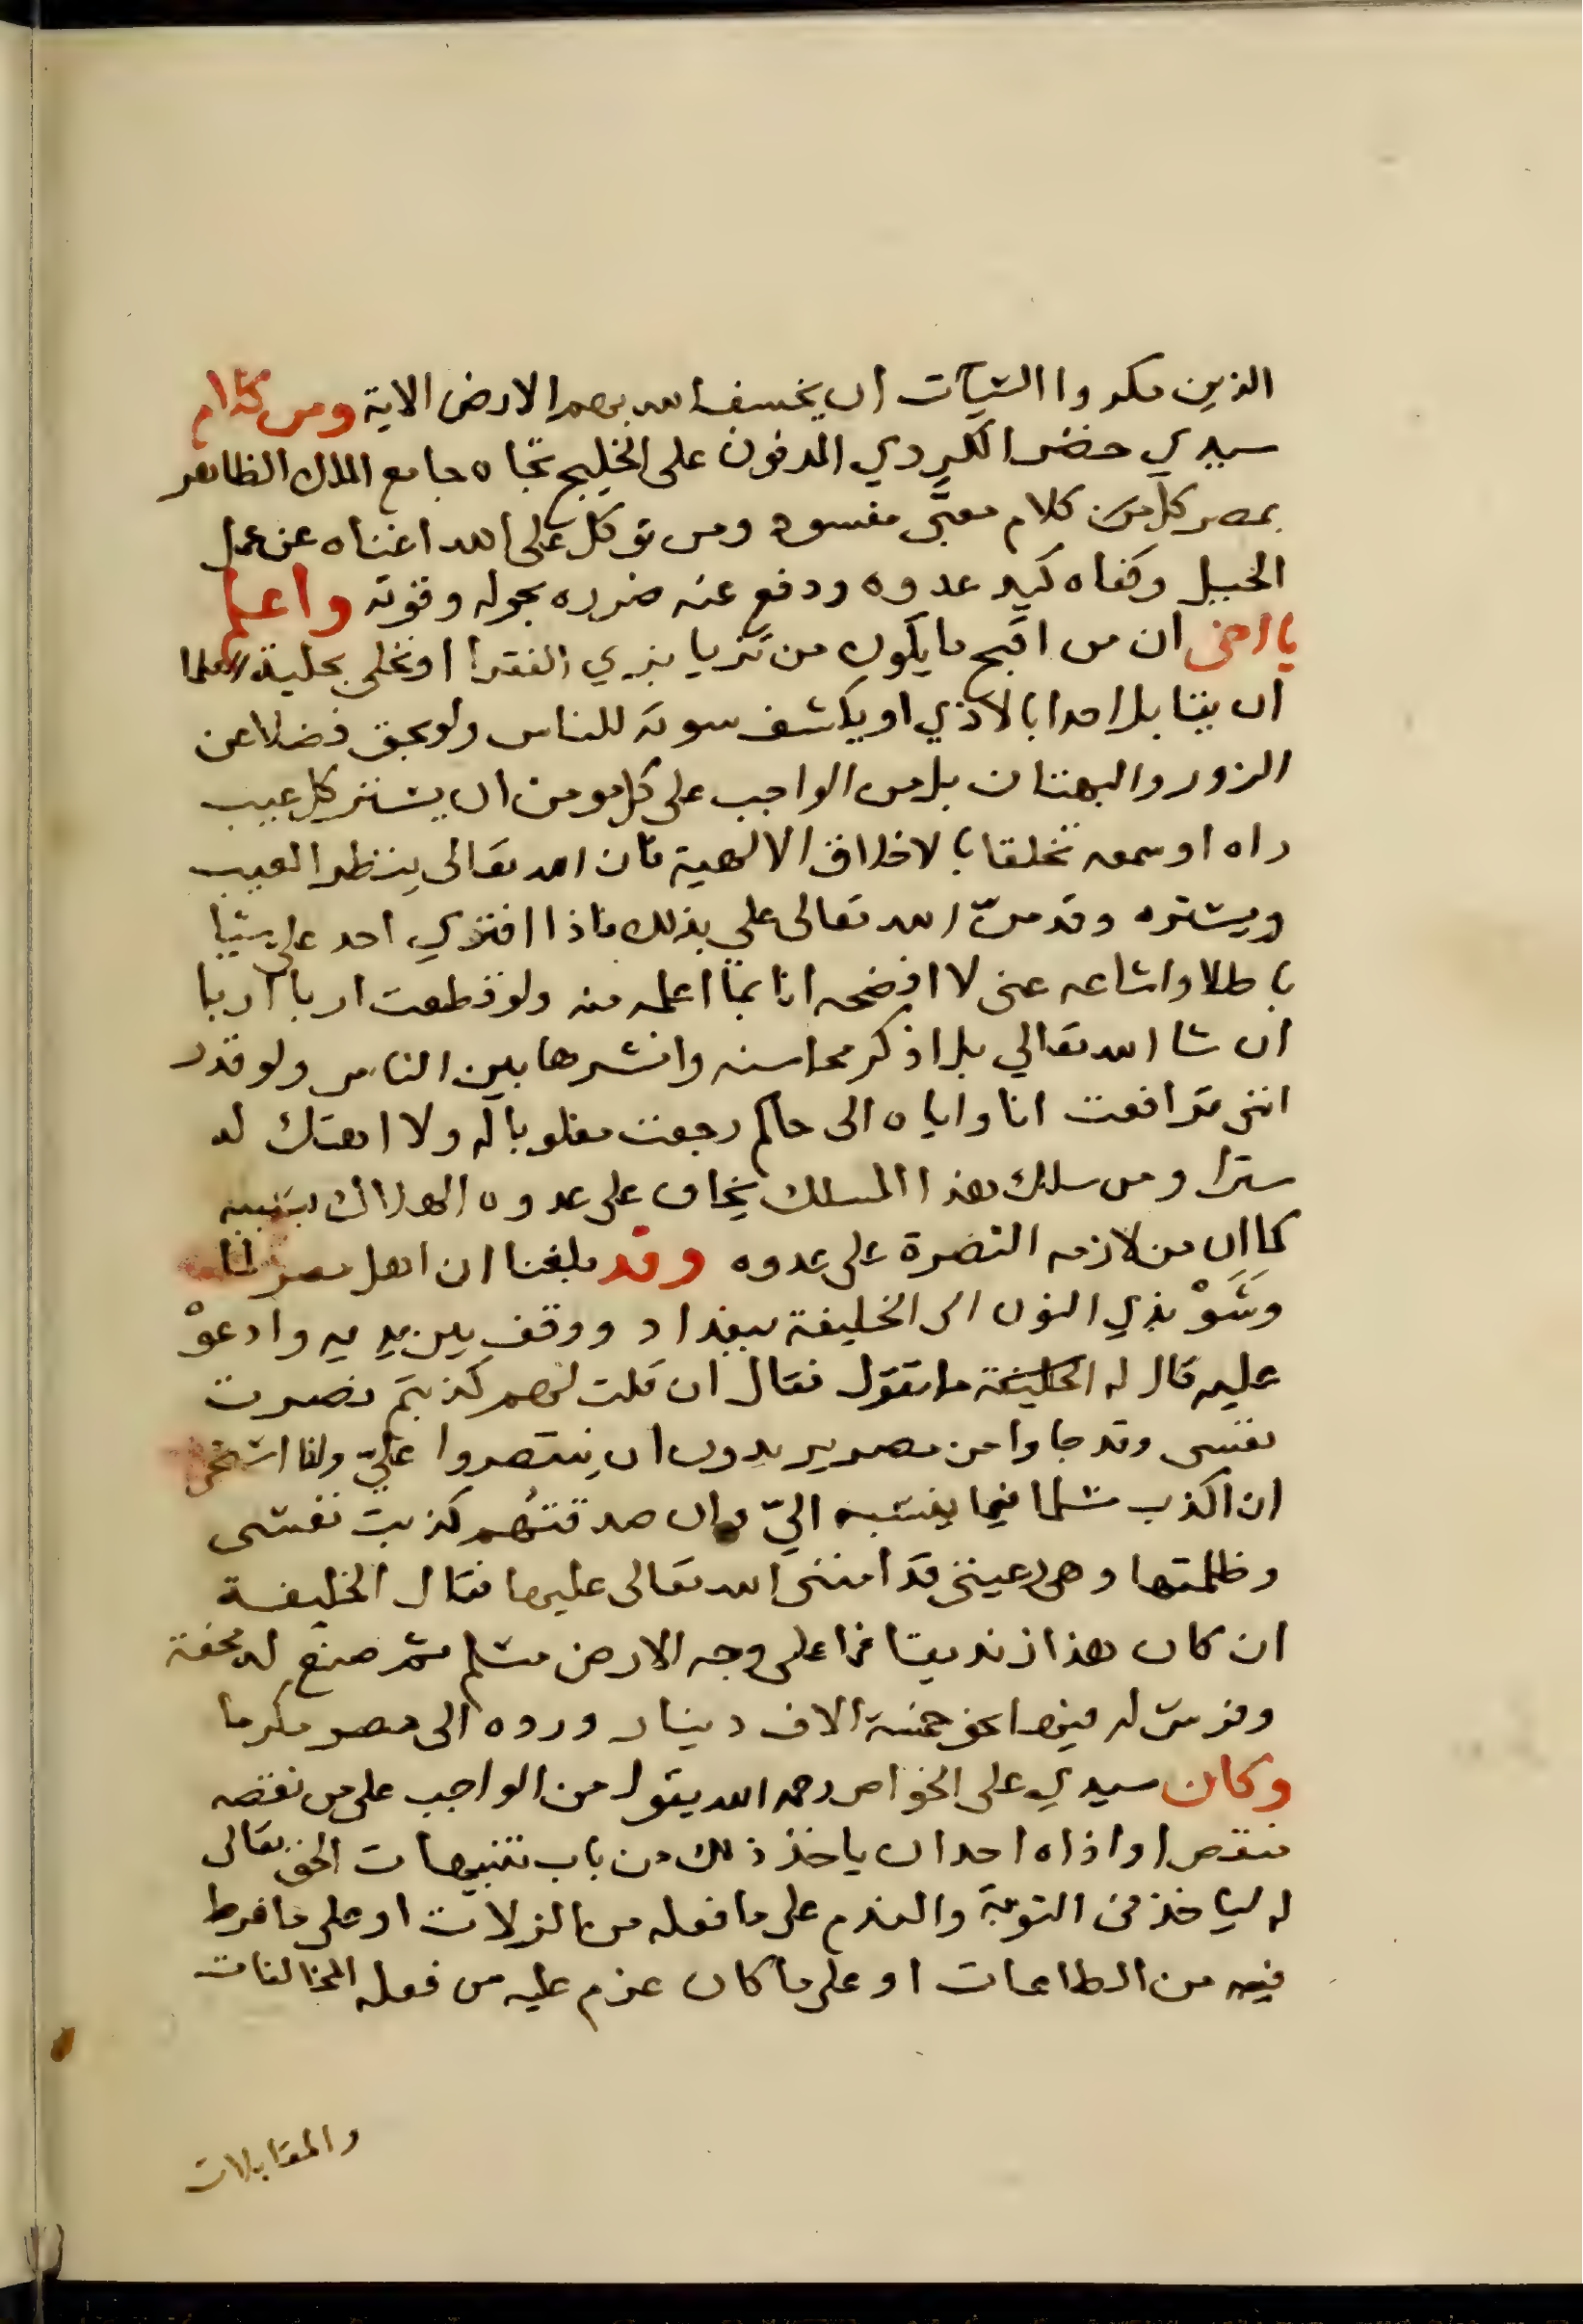 الذين مكروا السيآت ان يخسف الله بهم الارض الاية ومن كلام
سيدي خضر الكردي المدفون على الخليج تجاه جامع الملك الظاهر
بمصر كل من كلام معبّى مفسود ومن توكل على الله اغناه عن عمل
الحيل وكفاه كيد عدوه ودفع عنه ضرره بحوله وقوته واعلم
يا اخي ان من اقبح ما يكون من تزيا بزي الفقرا او تحلى بحلية العلما
ان يقابل احدا بالاذي او يكشف سوته للناس ولو بحق فضلا عن
الزور والبهتان بل من الواجب على كل مومن ان يستر كل عيب
راه او سمعه تخلقا بالاخلاق الالهية فان الله تعالى ينظر العيب
ويستره وقد منّ الله تعالى علي بذلك فاذا افتري احد علي شيا
باطلا واشاعه عني لا افضحه انا بما اعلمه منه ولو قطعت اربا اربا
ان شا الله تعالي بل اذكر محاسنه وانشرها بين الناس ولو قدر
انني ترافعت انا واياه الى حاكم رجعت مغلوبا له ولا اهتك له
سترا ومن سلك هذا المسلك يخاف على عدوه الهلاك بسببه
كما ان من لازمه النصرة على عدوه وقد بلغنا ان اهل مصر لما
وشَوْ بذي النون الى الخليفة ببغداد ووقف بين يديه وادعوْ
عليه قال له الخليفة ما تقول فقال ان قلت لهم كذبتم نصرت
نفسي وقد جاوا من مصر يريدون ان ينتصروا عليّ وانا استحي
ان اكذب مسلما فيما ينسبه اليّ وان صدقتُهم كذبت نفسي
وظلمتها وهي رعيتي قد امنني الله تعالى عليها فقال الخليفة
ان كان هذا زنديقا فما على وجه الارض مسلم ثم صنع له محفة
وفرش له فيها نحو خمسة الاف دينار ورده الى مصر مكرما
وكان سيدي على الخواص رحمه الله يقول من الواجب على من نقصه
منقص او اذاه احد ان ياخذ ذلك من باب تنبيهات الحق تعالى
له لياخذ في التوبة والندم على ما فعله من الزلات او على ما فرط
فيه من الطاعات او على ما كان عزم عليه من فعله المخالفات
والمقابلات